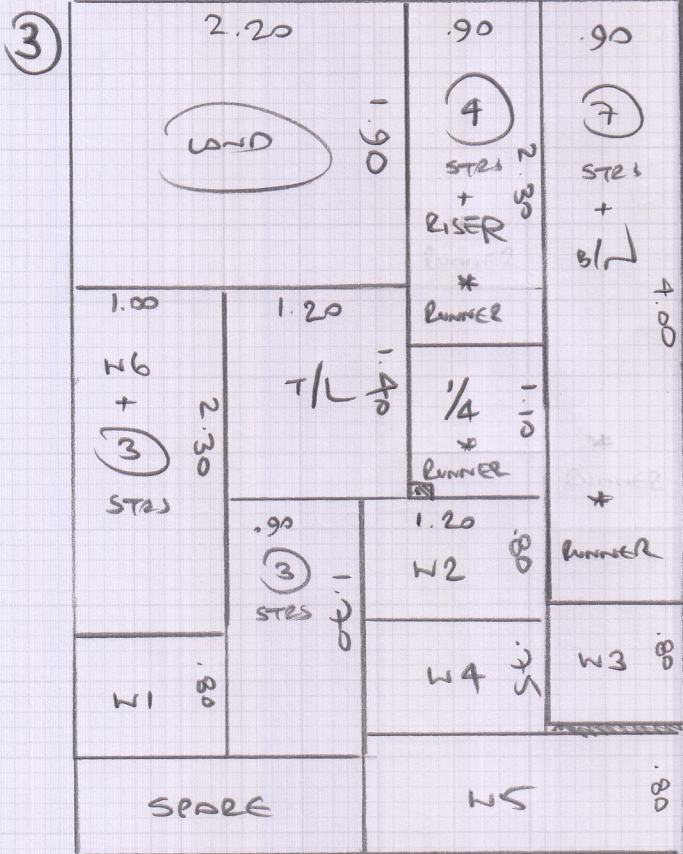 3
2.20
LAND
1.90
.90
4
STRS
+
RISER
*
RUNNER
2.30
.90
7
STRS
+
B/N
4.00
*
RUNNER
1.00
W6
+
3
STRS
2.30
1.20
T/L
1.40
1/4
*
RUNNER
1.10
.90
3
STRS
1.70
1.20
W2
.80
W4
.75
W3
.80
W1
.80
SPARE
W5
.80